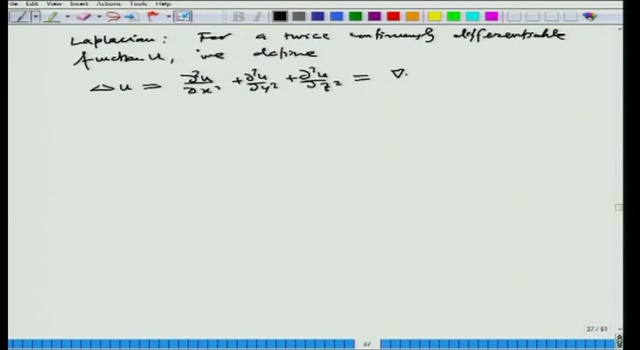 Edit View Insert Actions Tools Help
Laplacian: For a twice continuously differentiable
function u, we define
Δu = ∂²u/∂x² + ∂²u/∂y² + ∂²u/∂z² = ∇·
37 / 61
37